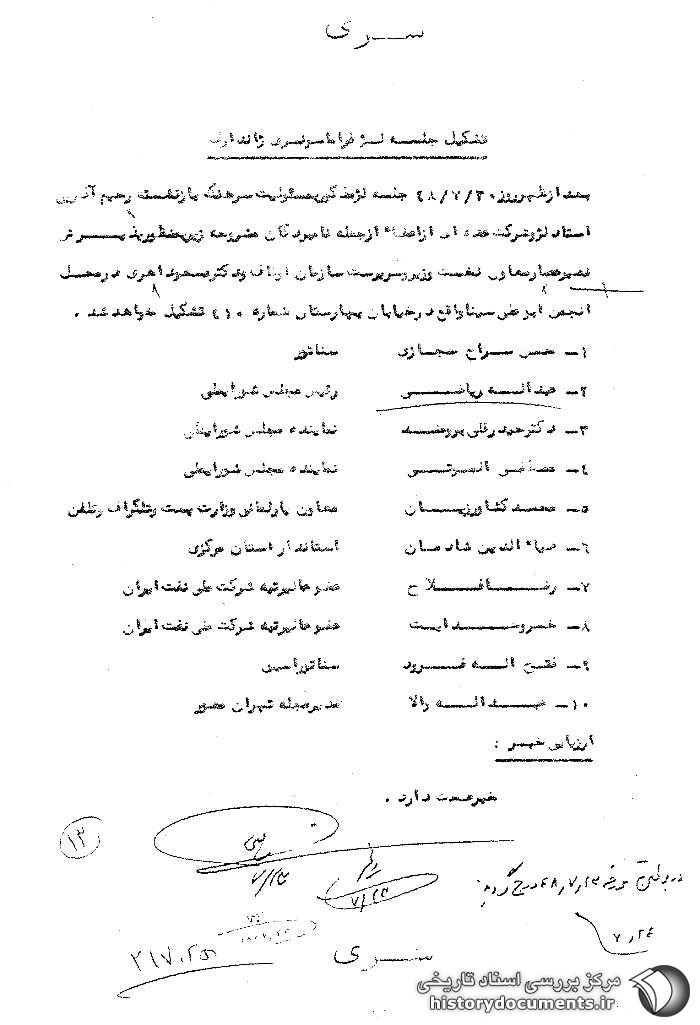 سری
تشکیل جلسه لژ فراماسونری ژاندارک
بعد از ظهر روز ۴۸/۷/۳۰ جلسه لژ مذکور بمسئولیت سرهنگ بازنشسته رحیم آذری
استاد لژ و شرکت عده ای از اعضاء از جمله نامبردگان مشروحه زیر بمنظور پذیرش
نصیر عصار معاون نخست وزیر و سرپرست سازمان اوقاف و دکتر مسعود اهری در محل
انجمن ابوعلی سینا واقع در خیابان بهارستان شماره ۴۱۰ تشکیل خواهد شد .
۱ــ حسن سراج حجازی سناتور
۲ــ عبدالله ریاضی رئیس مجلس شورایملی
۳ــ دکتر حیدرقلی برومند نماینده مجلس شورایملی
۴ــ مصطفی الموتی نماینده مجلس شورایملی
۵ــ محمد کشاورزیان معاون پارلمانی وزارت پست و تلگراف و تلفن
۶ــ ضیاء الدین شادمان استاندار استان مرکزی
۷ــ رضا فلاح عضو عالیرتبه شرکت ملی نفت ایران
۸ــ خسرو هدایت عضو عالیرتبه شرکت ملی نفت ایران
۹ــ فتح اله فرود سناتور
۱۰ــ عبداله والا مدیر مجله تهران مصور
ارزیابی خبر :
خبر صحت دارد .
۱۳
۷/۲۳
۷/۲۳
در بولتن مورخه ۴۸،۷،۲۳ درج گردید
۷،۲۴
سری
مرکز بررسی اسناد تاریخی
historydocuments.ir